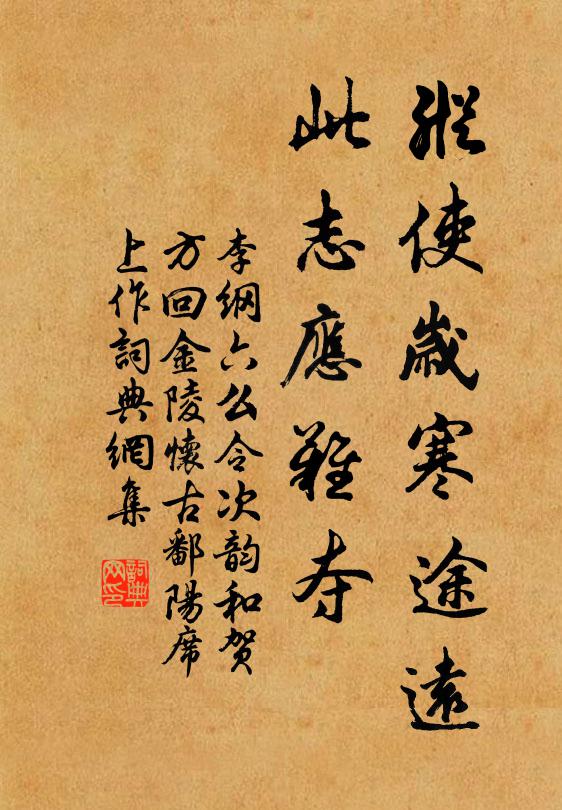 縱使歲寒途遠
此志應難夺
李綱六么令次韵和贺
方回金陵懷古鄱陽席
上作詞典網集
詞典
网印